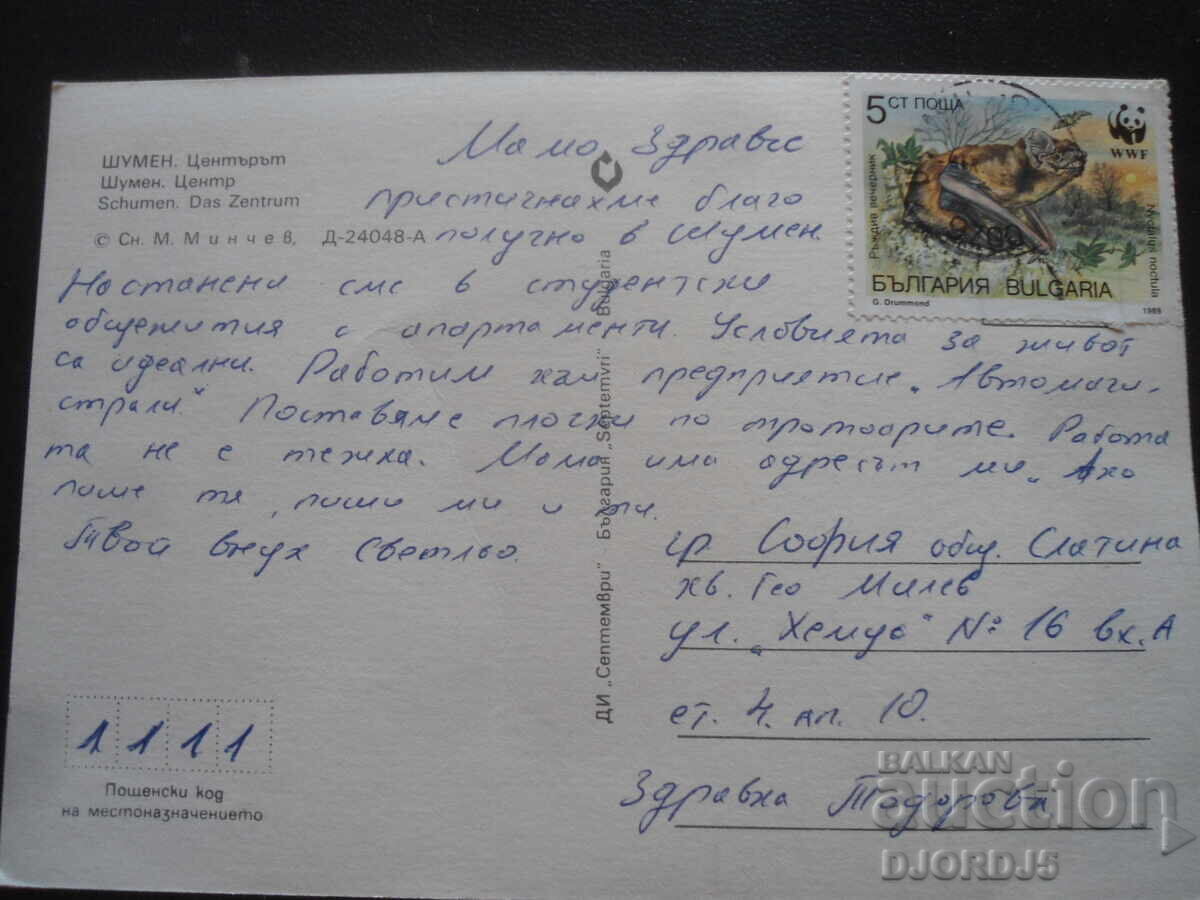 ШУМЕН. Центърът
Шумен. Центр
Schumen. Das Zentrum
© Сн. М. Минчев, Д-24048-А
Мамо Здравке
пристигнахме благо
получно в Шумен.
Настанени сме в студентски
общежития с апартаменти. Условията за живот
са идеални. Работим към предприятие „Автомаги-
страли." Поставяме плочки по тротоарите. Работа
та не е тежка. Мама има адресът ми. Ако
пише тя, пиши ми и ти.
Твой внук Светльо.
ДИ „Септември" · България „Septemvri" Bulgaria
5 СТ ПОЩА
WWF
Ръждив вечерник
Nyctalus noctula
БЪЛГАРИЯ BULGARIA
G. Drummond
1989
гр София общ. Слатина
кв. Гео Милев
ул. „Хемус" № 16 вх. А
ет. 4. ап. 10.
Здравка Тодорова
1111
Пощенски код
на местоназначението
BALKAN
auction
DJORDJ5